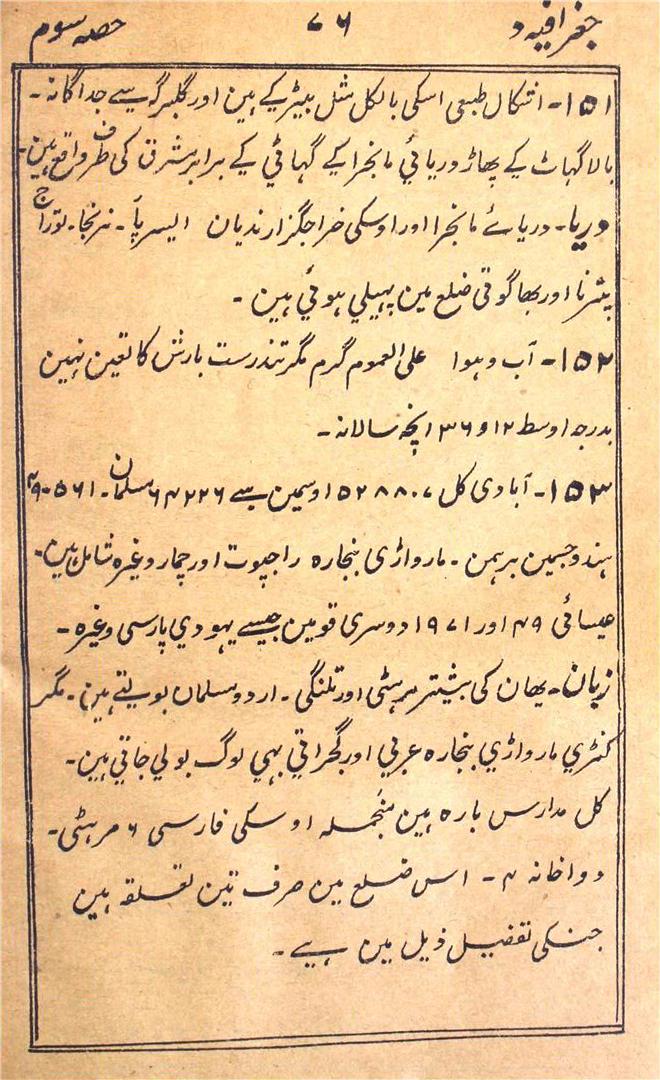 جغرافیہ د ۷۶ حصہ سوم
۱۵۱۔ اشکال طبعی اسکی بالکل مثل بیڑ کے ہین اور گلبرگہ سے جداگانہ۔
بالا گہاٹ کے پہاڑ دریائے مانجرا کے گہاٹی کے برابر مشرق کی طرف واقع ہین۔
دریا۔ دریائے مانجرا اور اوسکی خراجگزار ندیان السرپا۔ نرنجا۔ لوراج
بشرنا اور بھاگوتی ضلع مین پہیلی ہوئی ہین۔
۱۵۲۔ آب و ہوا علی العموم گرم مگر تندرست بارش کا تعین نہین
بدرجہ اوسط ۱۲ و ۳۶ انچہ سالانہ۔
۱۵۳۔ آبادی کل ۵۲۸۸۰۷ اوسمین سے ۶۴۲۲۶ مسلمان۔
ہندو جسمین برہمن۔ مارواڑی بنجارہ راجپوت اور چمار وغیرہ شامل ہین۔
عیسائی ۴۹ اور ۱۹۷۱ دوسری قومین جیسے یہودی پارسی وغیرہ۔
زبان۔ یہان کی بیشتر مرہٹی اور تلنگی۔ اردو مسلمان بولتے ہین۔ مگر
کنڑی مارواڑی بنجارہ عربی اور گجراتی بہی لوگ بولی جاتی ہین۔
کل مدارس بارہ ہین منجملہ اوسکی فارسی ۶ مرہٹی۔
دواخانہ ۴۔ اس ضلع مین صرف تین تعلقہ ہین
جنکی تفصیل ذیل مین ہے۔